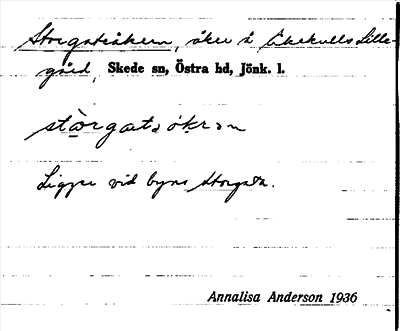 Storgatsåkern, åker å Åkekulls Lille-
gård, Skede sn, Östra hd, Jönk. l.
stòrgatsåkrən
Ligger vid byns storgata.
Annalisa Anderson 1936